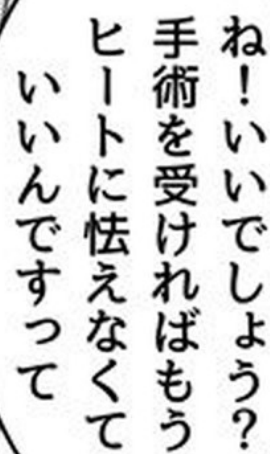 ね！いいでしょう？
手術を受ければもう
ヒートに怯えなくて
いいんですって